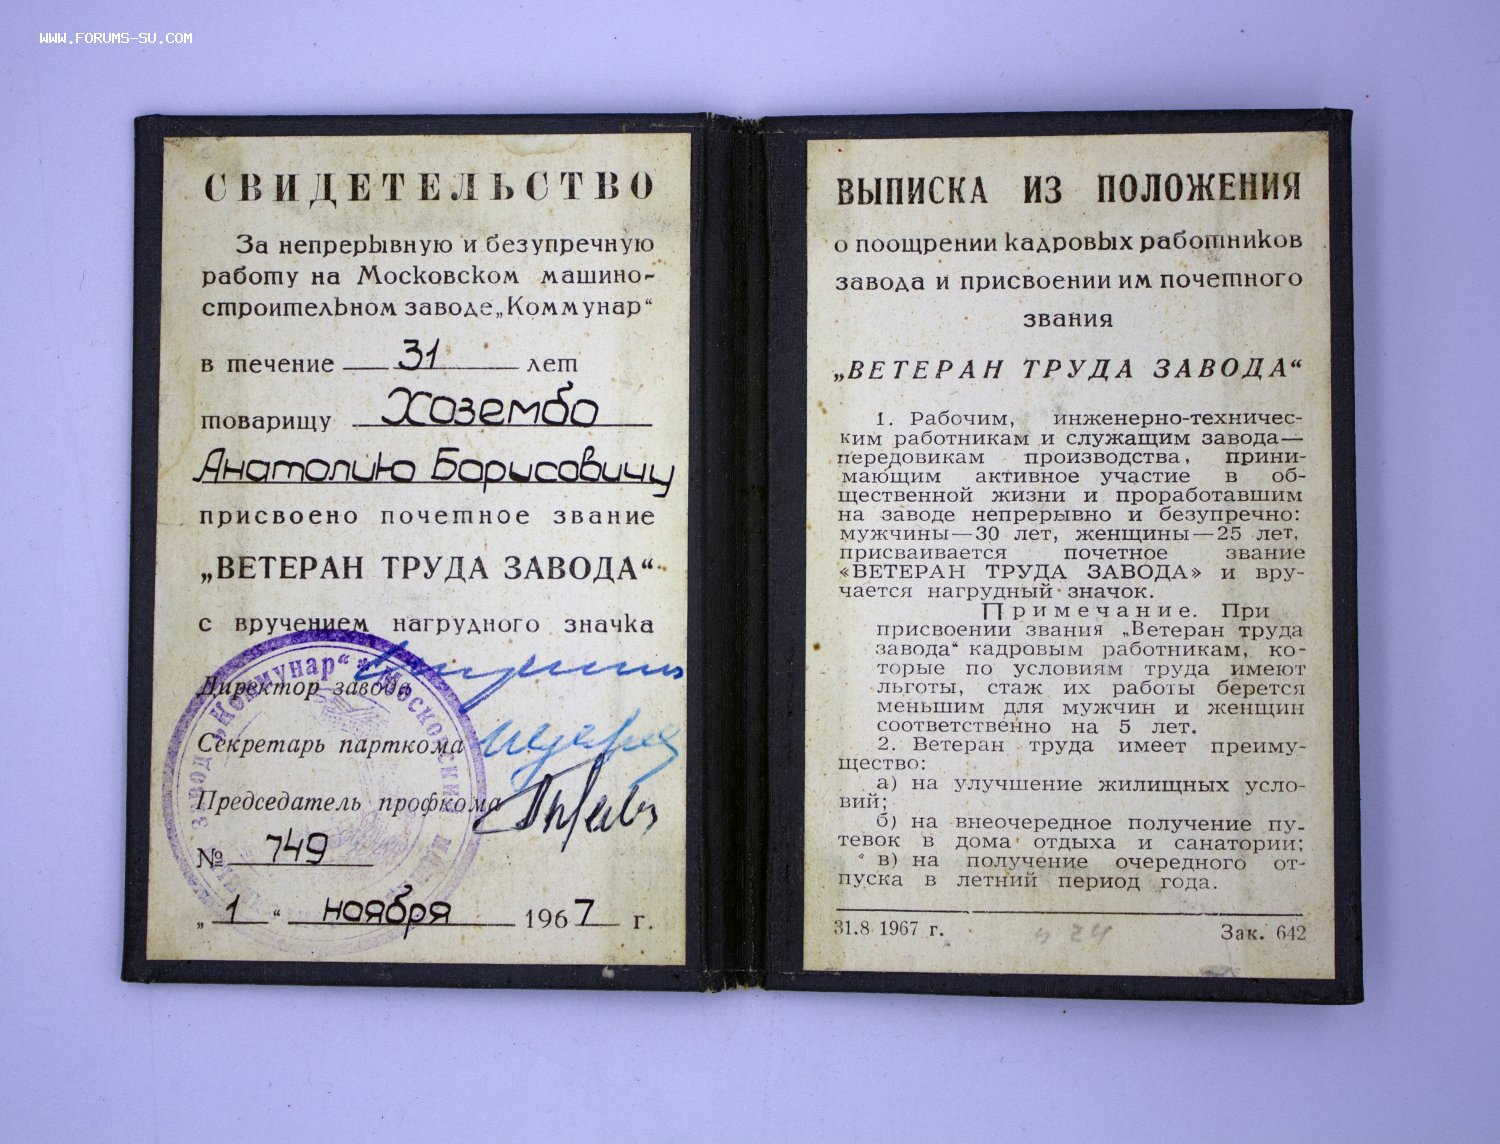 WWW.FORUMS-SU.COM
СВИДЕТЕЛЬСТВО
За непрерывную и безупречную
работу на Московском машино-
строительном заводе „Коммунар“
в течение 31 лет
товарищу Хозембо
Анатолию Борисовичу
присвоено почетное звание
„ВЕТЕРАН ТРУДА ЗАВОДА“
с вручением нагрудного значка
Директор завода
Секретарь парткома
Председатель профкома
№ 749
„1“ ноября 1967 г.
завод „Коммунар“ * Московский
ВЫПИСКА ИЗ ПОЛОЖЕНИЯ
о поощрении кадровых работников
завода и присвоении им почетного
звания
„ВЕТЕРАН ТРУДА ЗАВОДА“
1. Рабочим, инженерно-техничес-
ким работникам и служащим завода—
передовикам производства, прини-
мающим активное участие в об-
щественной жизни и проработавшим
на заводе непрерывно и безупречно:
мужчины—30 лет, женщины—25 лет,
присваивается почетное звание
«ВЕТЕРАН ТРУДА ЗАВОДА» и вру-
чается нагрудный значок.
Примечание. При
присвоении звания „Ветеран труда
завода“ кадровым работникам, ко-
торые по условиям труда имеют
льготы, стаж их работы берется
меньшим для мужчин и женщин
соответственно на 5 лет.
2. Ветеран труда имеет преиму-
щество:
а) на улучшение жилищных усло-
вий;
б) на внеочередное получение пу-
тевок в дома отдыха и санатории;
в) на получение очередного от-
пуска в летний период года.
31.8 1967 г. Зак. 642